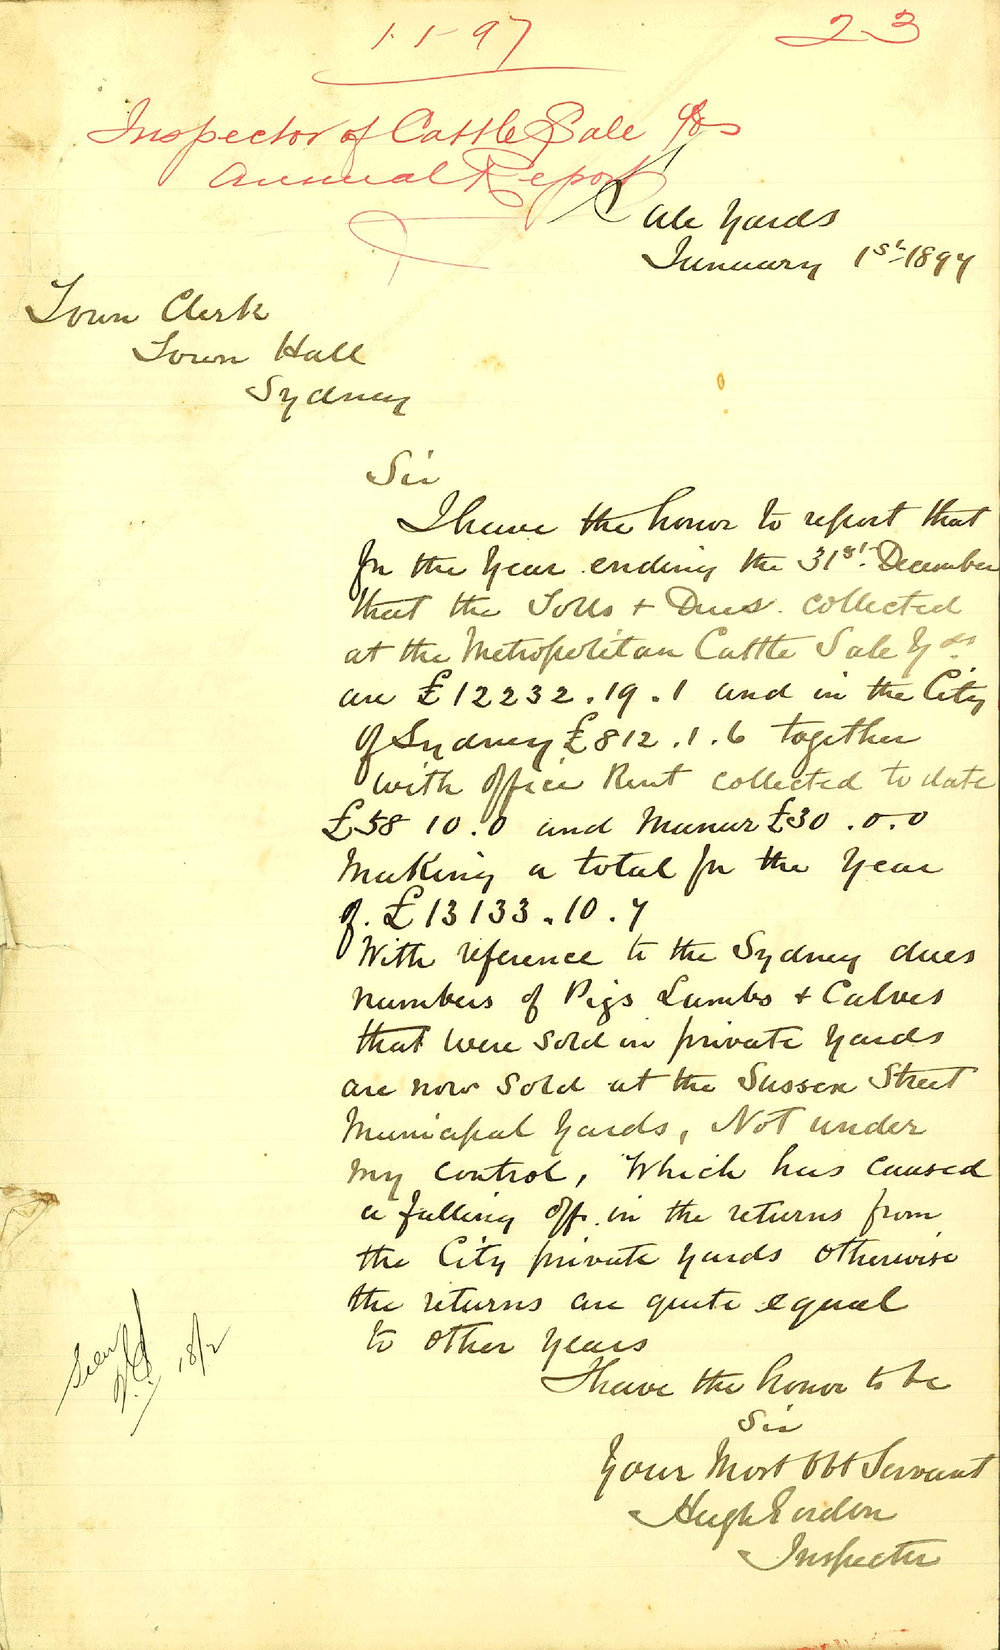 1-1-97
23
Inspector of Cattle Sale Yds
Annual Report
Sale Yards
January 1st 1897
Town Clerk
Town Hall
Sydney
Sir
I have the honor to report that
for the Year ending the 31st December
that the Tolls + Dues collected
at the Metropolitan Cattle Sale Yds
are £12232.19.1 and in the City
of Sydney £812.1.6 together
with office Rent collected to date
£58 10.0 and Manur £30.0.0
Making a total for the Year
of £13133.10.7
With reference to the Sydney dues
numbers of Pigs Lambs + Calves
that were sold in private Yards
are now sold at the Sussex Street
Municipal Yards, Not under
my control, Which has caused
a falling off in the returns from
the City private yards otherwise
the returns are quite equal
to other years
I have the honor to be
Sir
Your Most Obt Servant
Hugh Gordon
Inspector
Seen
18/2